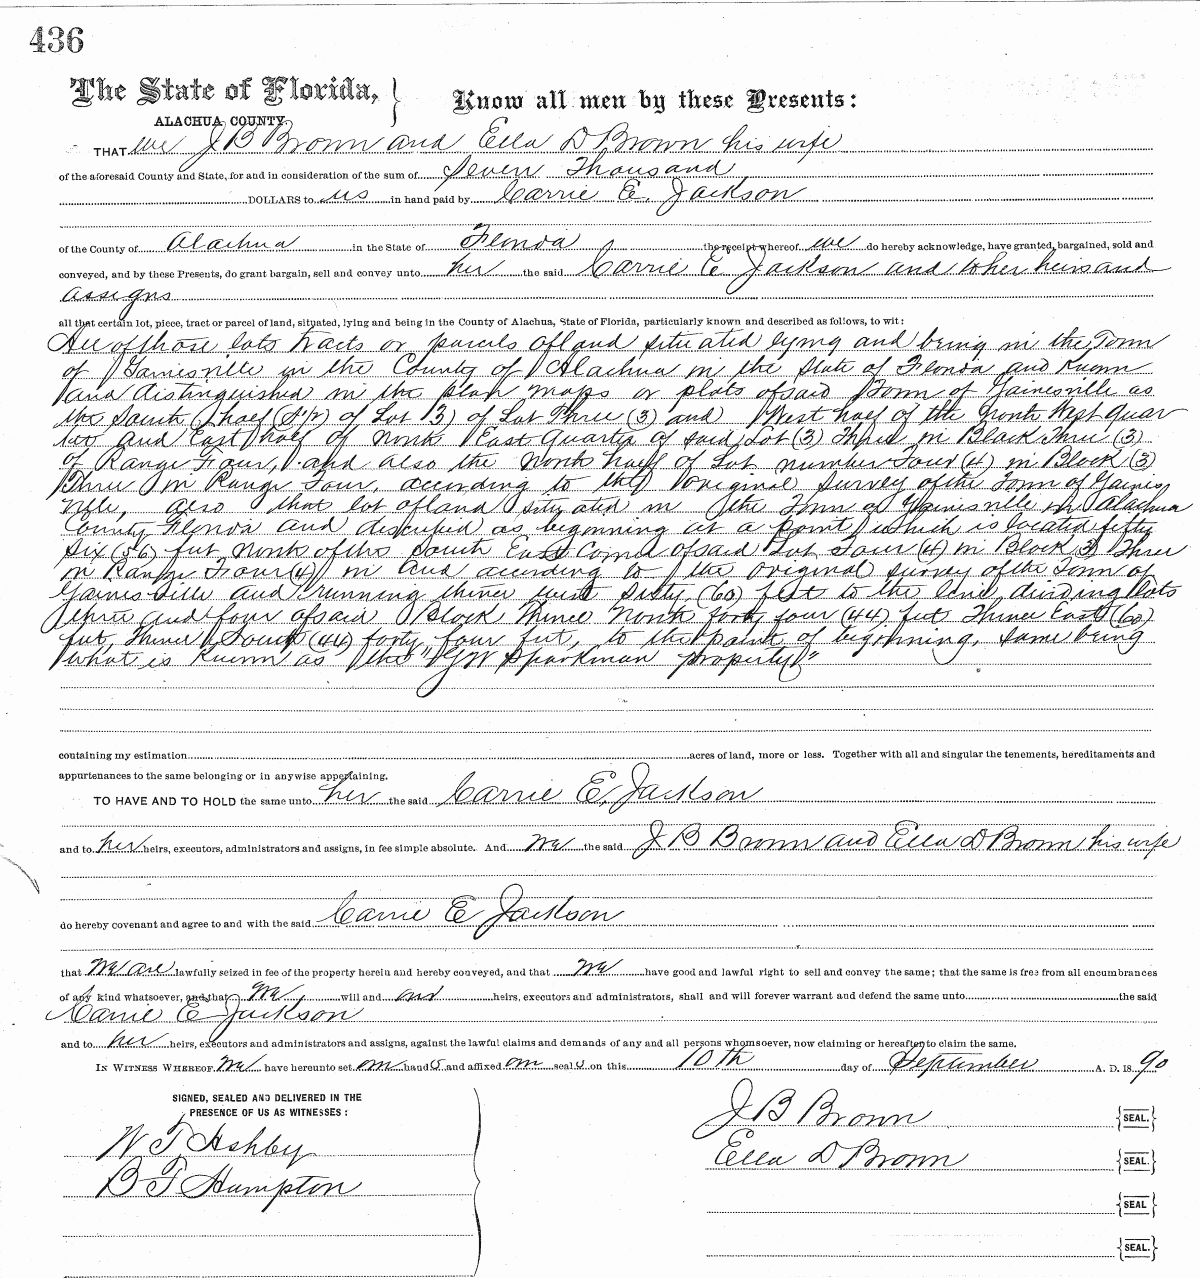 436
The State of Florida,
Know all men by these Presents:
ALACHUA COUNTY
THAT we J B Brown and Ella D Brown his wife
of the aforesaid County and State, for and in consideration of the sum of Seven Thousand
DOLLARS to us in hand paid by Carrie E. Jackson
of the County of Alachua in the State of Florida the receipt whereof we do hereby acknowledge, have granted, bargained, sold and
conveyed, and by these Presents, do grant bargain, sell and convey unto her the said Carrie E Jackson and to her heirs and
assigns
all that certain lot, piece, tract or parcel of land, situated, lying and being in the County of Alachua, State of Florida, particularly known and described as follows, to wit:
All of those lots tracts or parcels of land situated lying and being in the Town
of Gainesville in the County of Alachua in the State of Florida and Known
and distinguished in the plan maps or plots of said Town of Gainesville as
the South half (S 1/2) of Lot 3) of Lot Three (3) and West half of the North West Quar
and East half of North East Quarter of said Lot (3) Three in Block Three (3)
of Range Four, and also the North half of Lot number Four (4) in Block (3)
Three in Range Four, according to the original survey of the Town of Gaines
ville, also that lot of land situated in the Town of Gainesville in Alachua
County Florida and described as beginning at a point which is located fifty
six (56) feet North of the South East Corner of said Lot Four (4) in Block 3) Three
in Range Four (4) in and according to the original survey of the Town of
Gainesville and running thence west Sixty (60) feet to the line dividing lots
three and four of said Block Thence North forty four (44) feet Thence East (60)
feet, Thence South (44) forty four feet, to the point of beginning, same being
what is Known as the "G W Sparkman property"
containing my estimation acres of land, more or less. Together with all and singular the tenements, hereditaments and
appurtenances to the same belonging or in anywise appertaining.
TO HAVE AND TO HOLD the same unto her the said Carrie E, Jackson
and to her heirs, executors, administrators and assigns, in fee simple absolute. And we the said J B Brown and Ella D Brown his wife
do hereby covenant and agree to and with the said Carrie E Jackson
that we are lawfully seized in fee of the property herein and hereby conveyed, and that we have good and lawful right to sell and convey the same; that the same is free from all encumbrances
of any kind whatsoever, and that we will and our heirs, executors and administrators, shall and will forever warrant and defend the same unto the said
Carrie E Jackson
and to her heirs, executors and administrators and assigns, against the lawful claims and demands of any and all persons whomsoever, now claiming or hereafter to claim the same.
IN WITNESS WHEREOF we have hereunto set our hands and affixed our seals on this 10th day of September A. D. 1890
SIGNED, SEALED AND DELIVERED IN THE
PRESENCE OF US AS WITNESSES:
W T Ashby
B F Hampton
J B Brown SEAL.
Ella D Brown SEAL.
SEAL
SEAL.